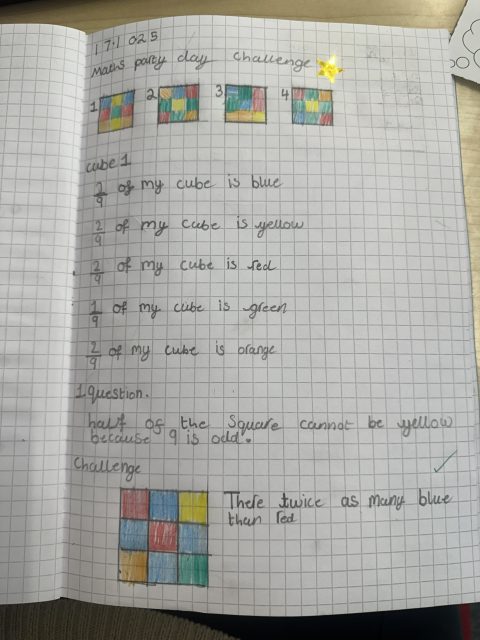 17.1 025
Maths party day challenge
1 2 3 4
cube 1
2/9 of my cube is blue
2/9 of my cube is yellow
2/9 of my cube is red
1/9 of my cube is green
2/9 of my cube is orange
1 question.
half of the square cannot be yellow
because 9 is odd.
Challenge
There twice as many blue
than red